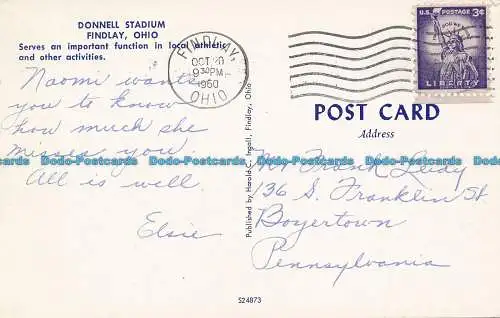 DONNELL STADIUM
FINDLAY, OHIO
Serves an important function in local athletic
and other activities.
Naomi wants
you to know
how much she
misses you.
All is well.
Elsie
Published by Harold C. Ingall, Findlay, Ohio
FINDLAY,
OCT 20
930PM
1960
OHIO
U.S. POSTAGE 3¢
IN GOD WE TRUST
LIBERTY
POST CARD
Address
Mr. Frank Leidy
136 S. Franklin St.
Boyertown
Pennsylvania
S24873
Dodo-Postcards Dodo-Postcards Dodo-Postcards Dodo-Postcards Dodo-Postcards